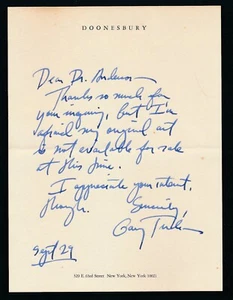 DOONESBURY
Dear Dr. Anderson—
Thanks so much for
your inquiry, but I'm
afraid my original art
is not available for sale
at this time.
I appreciate your interest,
though.
Sincerely,
Garry
Sept 29
New York, New York